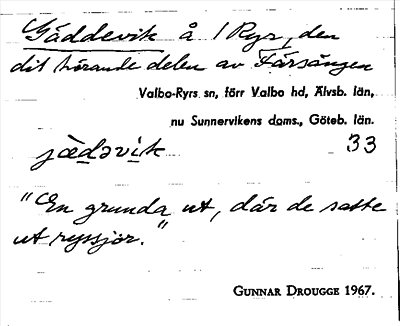 Gäddevik å 1 Ryr, den
dit hörande delen av Färsängen
Valbo-Ryrs sn, förr Valbo hd, Älvsb. län,
nu Sunnervikens doms., Göteb. län.
jæ̀dəvik 33
"En grunda ut, där de satte
ut ryssjor."
GUNNAR DROUGGE 1967.